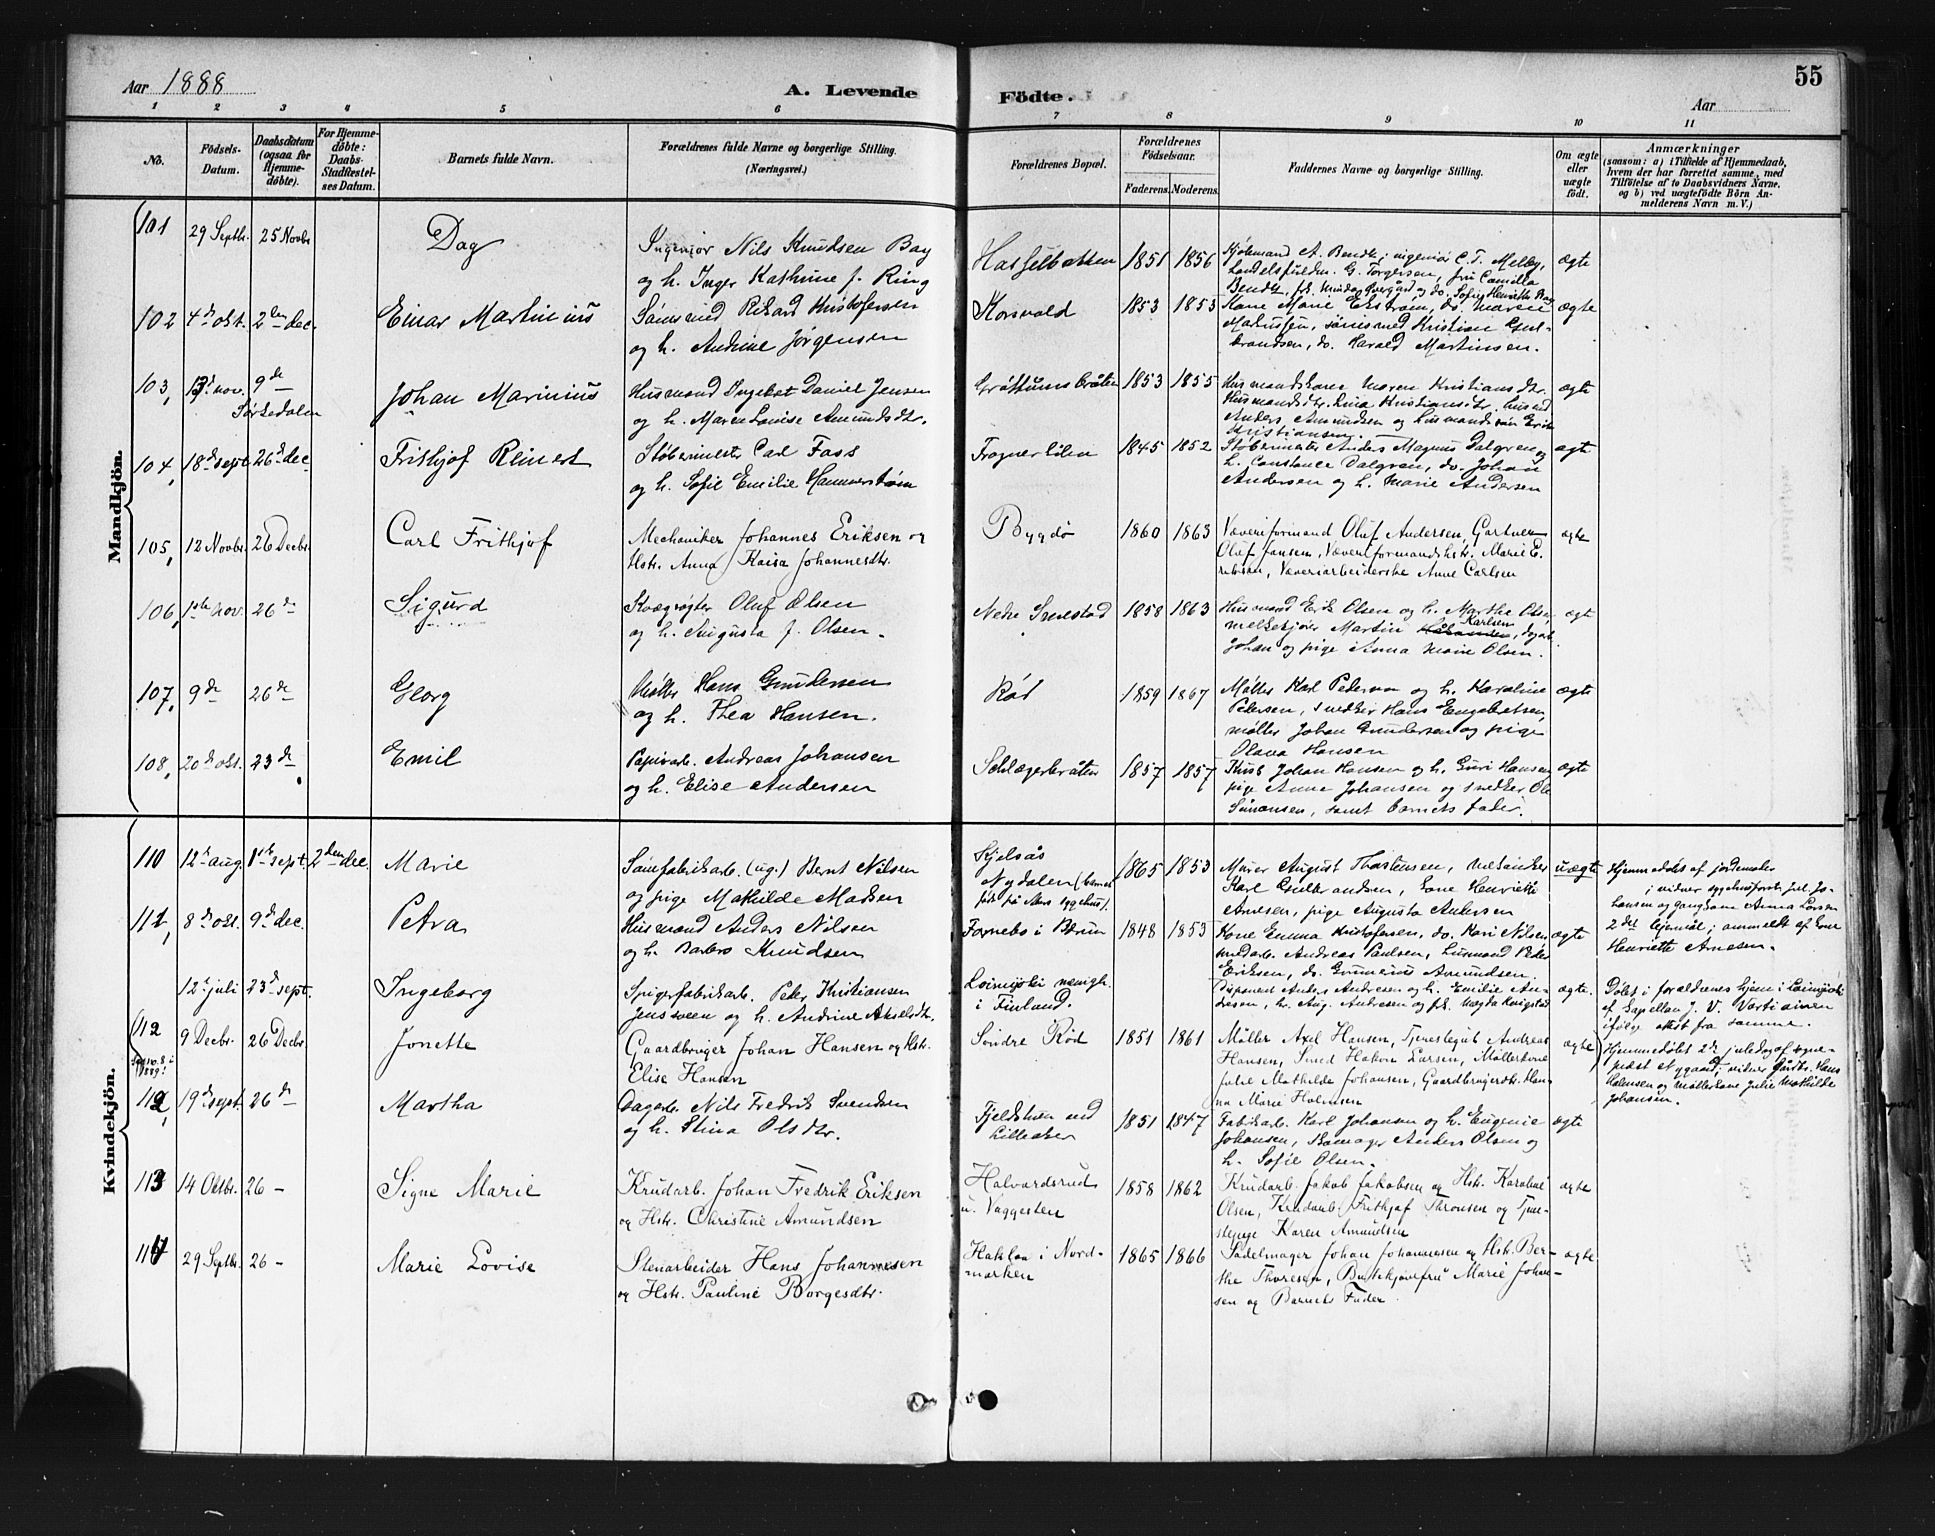 Aar 1888
A. Levende
Födte.
Aar
55
1 2 3 4 5 6 7 8 9 10 11
No.
Födsels-
Datum.
Daabsdatum
(ogsaa for
Hjemme-
døbte).
For Hjemme-
döbte:
Daabs-
Stadfæstel-
ses Datum.
Barnets fulde Navn.
Forældrenes fulde Navne og borgerlige Stilling.
(Næringsvei.)
Forældrenes Bopæl.
Forældrenes
Fødselsaar.
Faderens. Moderens.
Faddernes Navne og borgerlige Stilling.
Om ægte
eller
uægte
födt.
Anmærkninger
(saasom: a) i Tilfælde af Hjemmedaab,
hvem der har forrettet samme, med
Tilföielse af to Daabsvidners Navne,
og b) ved uægtefödte Börn An-
melderens Navn m. V.)
Mandkjön.
101 29 Septbr. 25 Novbr Dag
Ingeniør Nils Knudsen Bay
og h. Inger Kathrine f. Ring
Hasselbakken 1851 1856
Kjøbmand A. Bendtz, ingeniør C. T. Melby,
G. Torgersen, fru Camilla
ægte
102 4de okt. 2den dec. Einar Martinius
Rikard Kristofersen
og h. Andrine Jørgensen
Korsvold 1853 1853
Kone Marie Ekstrøm, do. Maren
Markussen, Kristian Gul-
brandsen, do. Harald Martinsen.
ægte
103, nov. 9de Sørkedalen Johan Marinius
Husmand Ingebret Daniel Jensen
og h. Maren Louise Amundsdtr.
Grøttumsbråten 1853 1855
Husmandskone Maren Kristiansdtr.
Husmandsdtr. Lina Kristiansdtr. husmd
Anders Amundsen og husmandssøn Erik
Kristiansen
ægte
104, 18de sept 26de dec Frithjof Reinert
Støbermester Carl Fass
og h. Sofie Emilie Hammerstøm
Frognerlilen 1845 1852
Støbermester Anders Magnus Dalgren og
h. Constance Dalgren, do. Johan
Andersen og h. Marie Andersen
ægte
105, 12 Novbr. 26 Decbr. Carl Frithjof
Mechaniker Johannes Eriksen og
Hstr. Anna Kaisa Johannesdtr.
Bygdø 1860 1863
Væveriformand Oluf Andersen, Gartner
Oluf Jansen, Væveriformandshstr. Marie E-
riksen, Væveriarbeiderske Anne Carlsen
ægte
106, 1ste nov. 26de Sigurd
Kvægrøgter Oluf Olsen
og h. Augusta f. Olsen.
Nedre Smestad 1858 1863
Husmand Erik Olsen og h. Marthe Olsen,
melkekjører Martin Karlsen,
Johan og pige Anna Marie Olsen.
ægte
107, 9de 26de Georg
Møller Hans Gundersen
og h. Thea Hansen.
Rød 1859 1867
Møller Karl Pedersen og h. Karoline
Petersen, snedker Hans Engebretsen,
møller Johan Gundersen og pige
Olava Hansen
ægte
108, 20de okt. 23de Emil
Papirarb. Andreas Johansen
og h. Elise Andersen
Schlægerbråten 1857 1857
Kusk Johan Hansen og h. Guri Hansen
pige Anne Johansen og snedker Ole
Simonsen, samt barnets fader.
ægte
Kvindekjön.
110 12te aug. 1ste sept. 2den dec. Marie
Sømfabrikarb. (ug.) Bernt Nilsen
og pige Mathilde Madsen
Kjelsås
Nydalen (barnet
født på Akers sygehus).
1865 1853
Murer August Thorstensen, mekaniker
Karl Gulbrandsen, kone Henriette
Arnesen, pige Augusta Andersen
uægte
Hjemmedøbt af jordemoder
; vidner Jul. Jo-
hansen og gangkone Anna Larsen
2det leiermål; anmeldt af kone
Henriette Arnesen.
111, 8de okt. 9de dec. Petra
Husmand Anders Nilsen
og h. Barbro Knudsen
Fornebo i Bærum 1848 1853
Kone Emma Kristofersen, do. Kari Nilsen
Andreas Paulsen, husmand Peder
Eriksen, do. Gunerius Amundsen.
ægte
12te juli 23de sept. Ingeborg
Spigerfabrikarb. Peter Kristiansen
Jenssveen og h. Andrine Akselsdtr.
Loimijoki menigh.
i Finland.
Disponent Anders Andresen og h. Emilie An-
dresen, h. Aug. Andresen og frk. Magda Kongstad
ægte.
Døbt i forældrenes hjem i Loimijoki
af kapellan J. V. Vartiainen
ifølge attest fra samme.
112 9 Decbr. 26 Decbr. Jonette
Gaardbruger Johan Hansen og Hstr.
Elise Hansen
Søndre Rød 1851 1861
Møller Axel Hansen, Tjenestegut Andreas
Hansen, Smed Hakon Larsen, Møllerkone
Julie Mathilde Johansen, Gaardbrugerdtr. Han-
na Marie Holmsen
ægte
Hjemmedøbt 2de juledag af sogne-
præst Nygaard; vidner Gårdbr. Hans
Holmsen og møllerkone Julie Mathilde
Johansen.
112, 19de sept. 26de Martha
Dagarb. Nils Fredrik Svendsen
og h. Stina Olsdtr.
Fjeldstuen ved
Lilleaker
1851 1847
Fabrikarb. Karl Johansen og h. Eugenie
Johansen, Anders Olsen og
h. Sofie Olsen.
ægte
113 14 Oktbr. 26 – Signe Marie
Krudarb. Johan Fredrik Eriksen
og Hstr. Christine Amundsen
Halvardsrud
u. Vaggesten
1858 1862
Krudarb. Jakob Jakobsen og Hstr. Karoline
Olsen, Krudarb. Frithjof Thronsen og Tjene-
stepige Karen Amundsen
ægte
114 29 Septbr. 26 – Marie Lovise
Stenarbeider Hans Johannesen
og Hstr. Pauline Borgesdtr.
Hakloa i Nord-
marken
1865 1866
Sadelmager Johan Johannesen og Hstr. Ber-
the Thoresen, Marie Johan-
sen og Barnets Fader.
ægte